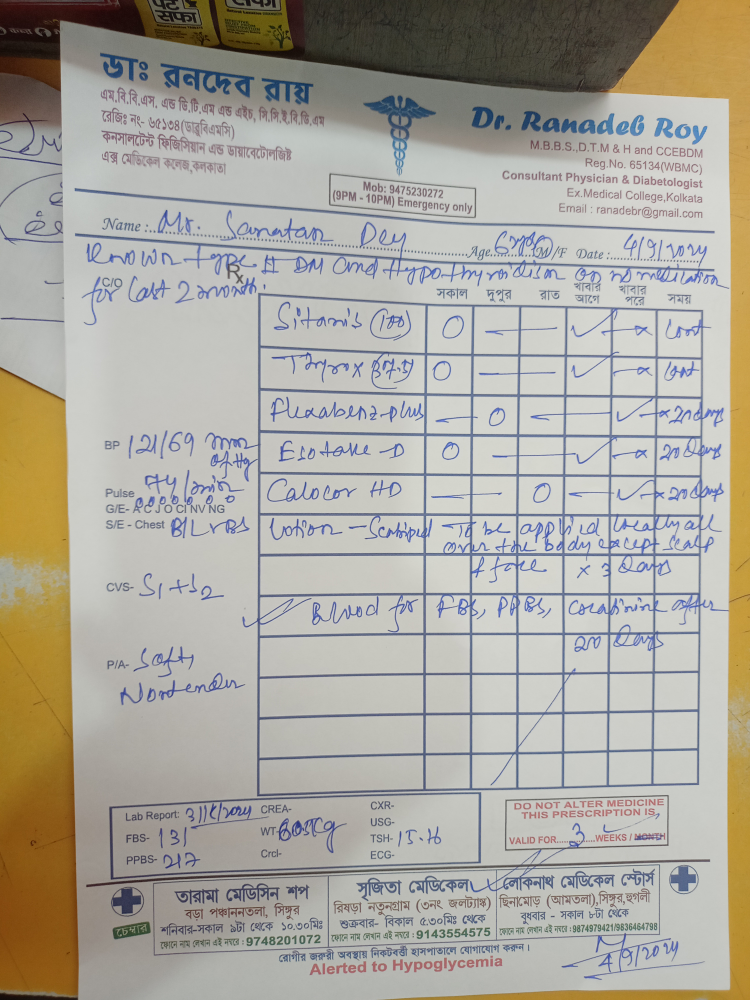 ডাঃ রনদেব রায়
এম.বি.বি.এস, এন্ড ডি.টি.এম এন্ড এইচ, সি.সি.ই.বি.ডি.এম
রেজিঃ নং- ৬৫১৩৪(ডাব্লুবিএমসি)
কনসালটেন্ট ফিজিসিয়ান এন্ড ডায়াবেটোলজিষ্ট
এক্স মেডিকেল কলেজ,কলকাতা
Dr. Ranadeb Roy
M.B.B.S.,D.T.M & H and CCEBDM
Reg.No. 65134(WBMC)
Consultant Physician & Diabetologist
Ex.Medical College,Kolkata
Email : ranadebr@gmail.com
Mob: 9475230272
(9PM - 10PM) Emergency only
Name :.. Mr. Sanatan Dey Age. M/F Date : 4/9/2024
Known type II DM and Hypothyroidism on no medication
C/O for last 2 months.
Rx
সকাল দুপুর রাত খাবার আগে খাবার পরে সময়
Sitanis (100) O — ✓ — x Cont
Thyrox (37.5) O — ✓ — x Cont
Flexabenz-plus — O — ✓ — x 20 days
Esotake-D O — ✓ — x 20 Days
Calocor HD — O — ✓ — x 20 days
Lotion — To be applied locally all
over the body except scalp
& face x 3 Days
✓ Blood for FBS, PPBS, Creatinine after
20 Days
BP 121/69 mm of Hg
Pulse 74/min
G/E- A C J O CI NV NG
S/E - Chest B/L VBS
CVS- S1+S2
P/A- Soft,
Nontender
Lab Report: CREA- CXR-
FBS- 131 WT- USG-
TSH- 15.16
PPBS- 217 Crcl- ECG-
DO NOT ALTER MEDICINE
THIS PRESCRIPTION IS
VALID FOR.... 3 ....WEEKS / MONTH
চেম্বার
তারামা মেডিসিন শপ
বড়া পঞ্চাননতলা, সিঙ্গুর
শনিবার-সকাল ৯টা থেকে ১০.৩০মিঃ
ফোনে নাম লেখান এই নম্বরে : 9748201072
সৃজিতা মেডিকেল
রিষড়া নতুনগ্রাম (৩নং জলট্যাঙ্ক)
শুক্রবার- বিকাল ৫.৩০মিঃ থেকে
ফোনে নাম লেখান এই নম্বরে : 9143554575
লোকনাথ মেডিকেল স্টোর্স
ছিনামোড় (আমতলা),সিঙ্গুর,হুগলী
বুধবার - সকাল ৮টা থেকে
ফোনে নাম লেখান এই নম্বরে : 9874979421/9836464798
রোগীর জরুরী অবস্থায় নিকটবর্ত্তী হাসপাতালে যোগাযোগ করুন।
Alerted to Hypoglycemia
4/9/2024